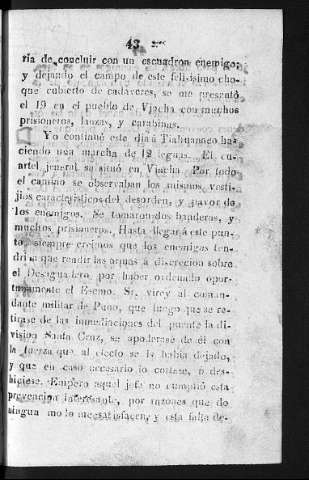 43
ría de concluir con un escuadron enemigo,
y dejando el campo de este felisisimo cho-
que cubierto de cadaveres, se me presentó
el 19 en el pueblo de Viacha con muchos
prisioneros, lanzas, y carabinas.
Yo continué este dia á Tiahuanaco ha-
ciendo una marcha de 12 leguas. El cu-
artel jeneral se situó en Viacha. Por todo
el camino se observaban los mismos vesti-
jios caracteristicos del desorden, y pavor de
los enemigos. Se tomaron dos banderas, y
muchos prisioneros. Hasta llegar á este pun-
to, siempre creimos que los enemigos ten-
dria que rendir las armas á discrecion sobre
el Desaguadero, por haber ordenado opor-
tunamente el Escmo. Sr. virey al coman-
dante militar de Puno, que luego que se re-
tirase de las inmediaciones del puente la di-
vision Santa Cruz, se apoderase de él con
la fuerza que al efecto se le habia dejado,
y que en caso necesario lo cortase, ó des-
hiciese. Empero aquel jefe no cumplió esta
prevencion interesante, por razones que de
ningua modo me satisfacen, y esta falta de-